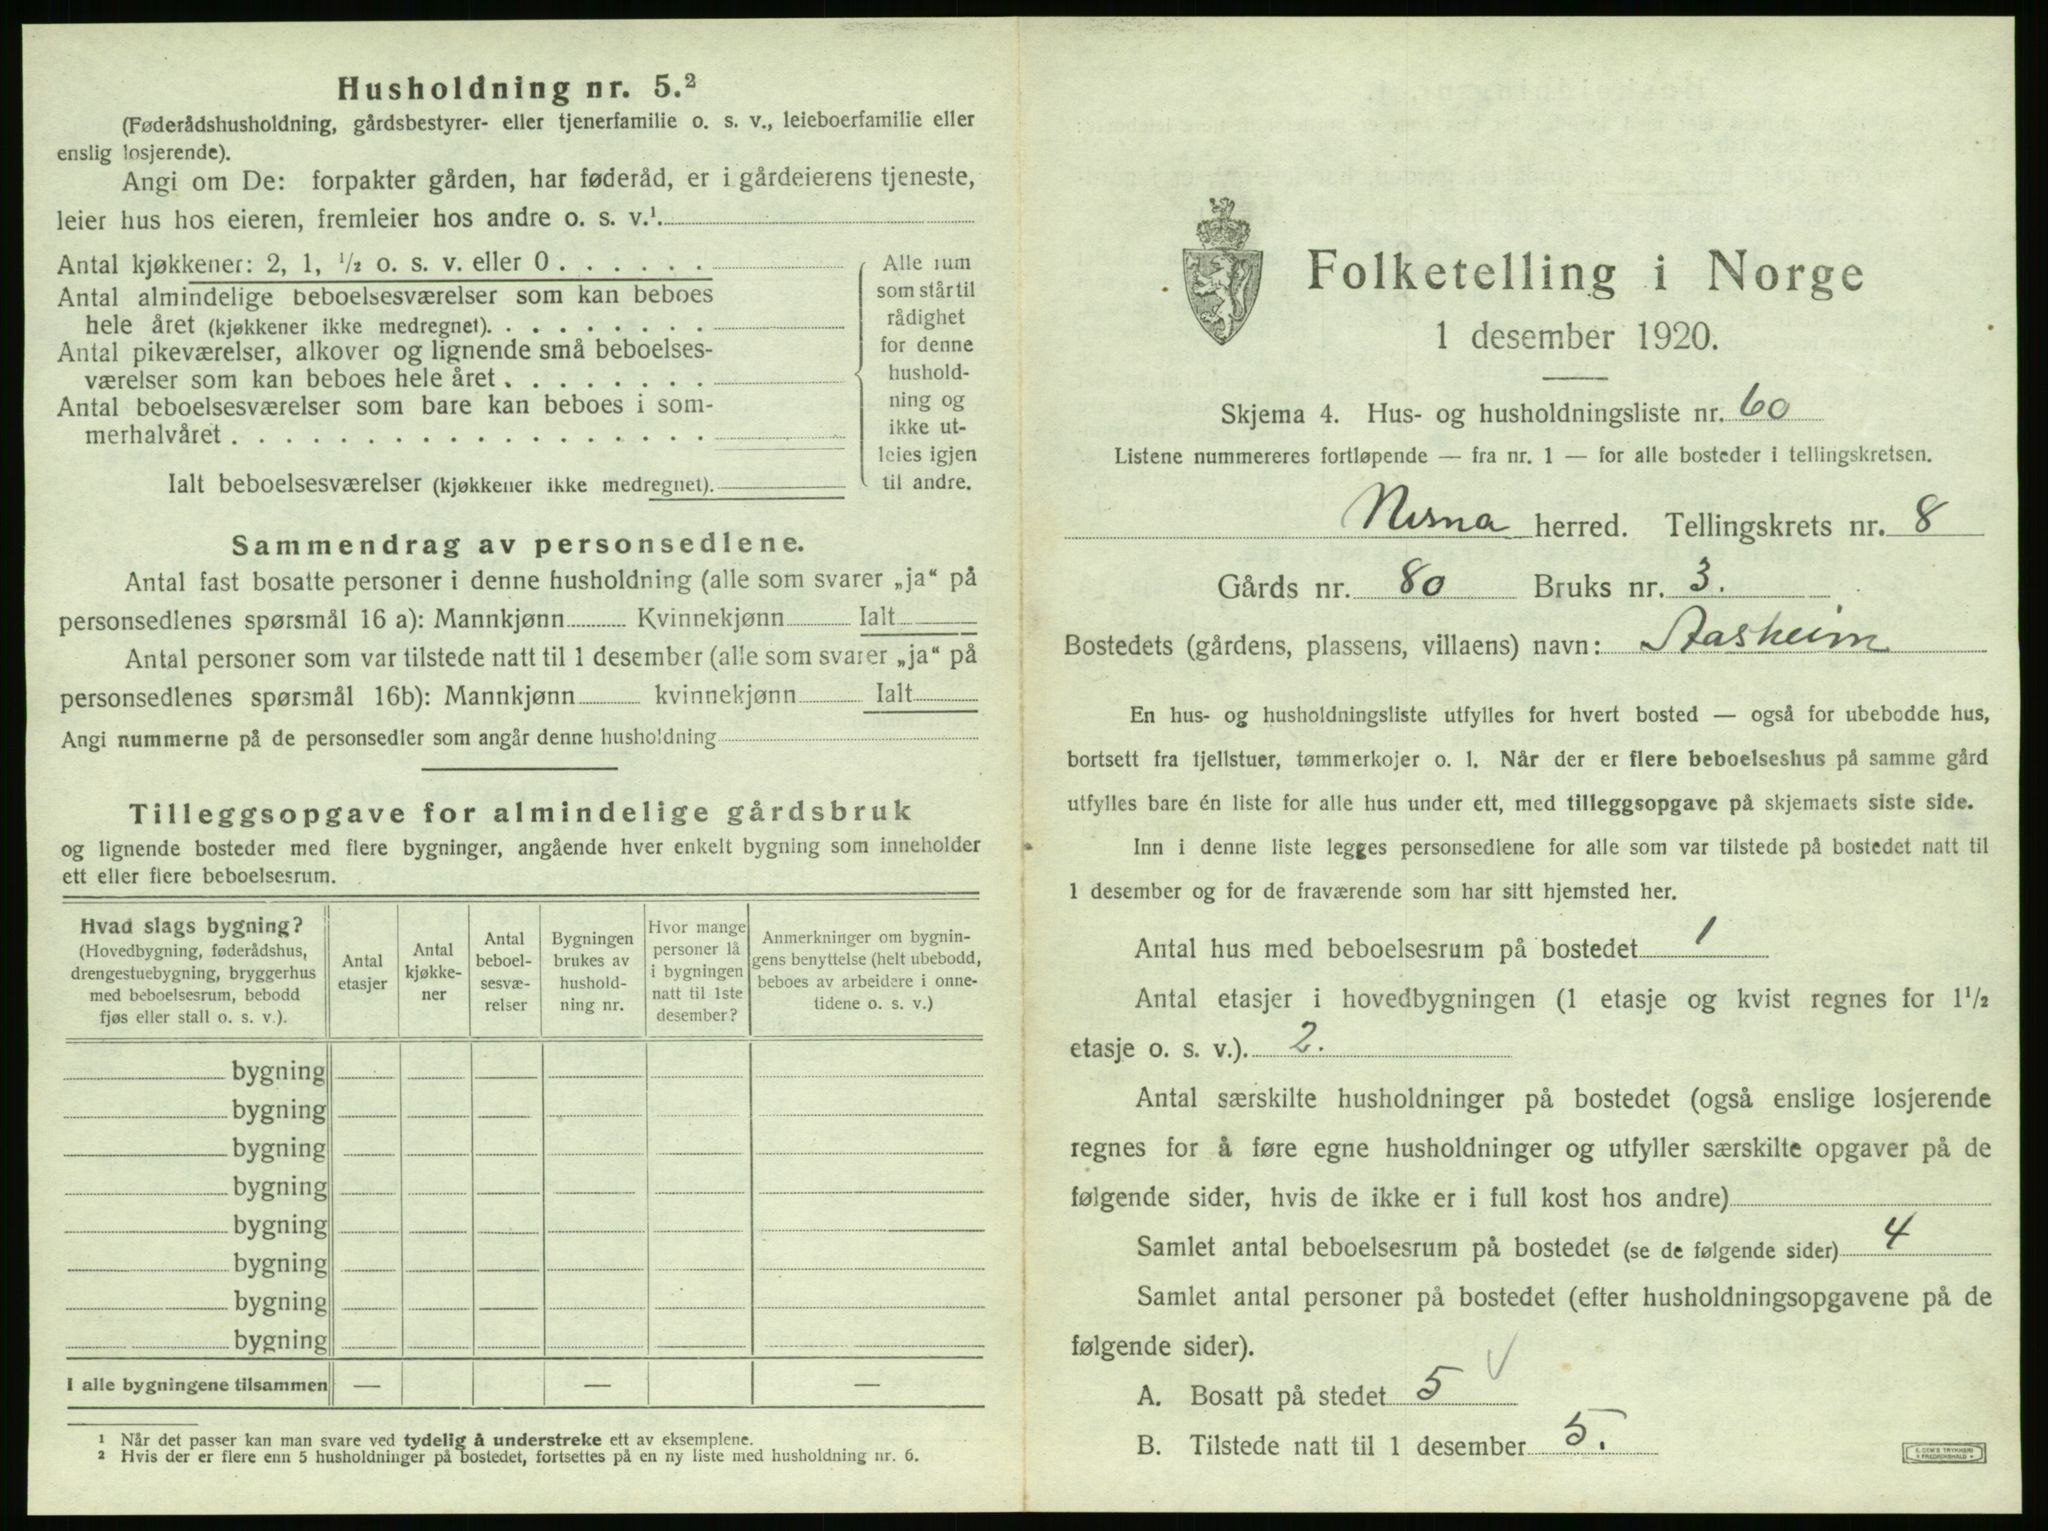 Husholdning nr. 5.²
(Føderådshusholdning, gårdsbestyrer- eller tjenerfamilie o. s. v., leieboerfamilie eller
enslig losjerende).
Angi om De: forpakter gården, har føderåd, er i gårdeierens tjeneste,
leier hus hos eieren, fremleier hos andre o. s. v.¹
Antal kjøkkener: 2, 1, ½ o. s. v. eller 0
Antal almindelige beboelsesværelser som kan beboes
hele året (kjøkkener ikke medregnet)
Antal pikeværelser, alkover og lignende små beboelses-
værelser som kan beboes hele året
Antal beboelsesværelser som bare kan beboes i som-
merhalvåret
Ialt beboelsesværelser (kjøkkener ikke medregnet)
Alle rum
som står til
rådighet
for denne
hushold-
ning og
ikke ut-
leies igjen
til andre.
Sammendrag av personsedlene.
Antal fast bosatte personer i denne husholdning (alle som svarer „ja“ på
personsedlenes spørsmål 16 a): Mannkjønn Kvinnekjønn Ialt
Antal personer som var tilstede natt til 1 desember (alle som svarer „ja“ på
personsedlenes spørsmål 16b): Mannkjønn kvinnekjønn Ialt
Angi nummerne på de personsedler som angår denne husholdning
Tilleggsopgave for almindelige gårdsbruk
og lignende bosteder med flere bygninger, angående hver enkelt bygning som inneholder
ett eller flere beboelsesrum.
Hvad slags bygning?
(Hovedbygning, føderådshus,
drengestuebygning, bryggerhus
med beboelsesrum, bebodd
fjøs eller stall o. s. v.).
Antal
etasjer
Antal
kjøkke-
ner
Antal
beboel-
sesvæ-
relser
Bygningen
brukes av
hushold-
ning nr.
Hvor mange
personer lå
i bygningen
natt til 1ste
desember?
Anmerkninger om bygnin-
gens benyttelse (helt ubebodd,
beboes av arbeidere i onne-
tidene o. s. v.)
bygning
bygning
bygning
bygning
bygning
bygning
bygning
bygning
I alle bygningene tilsammen — — —
¹ Når det passer kan man svare ved tydelig å understreke ett av eksemplene.
² Hvis der er flere enn 5 husholdninger på bostedet, fortsettes på en ny liste med husholdning nr. 6.
Folketelling i Norge
1 desember 1920.
Skjema 4. Hus- og husholdningsliste nr. 60
Listene nummereres fortløpende — fra nr. 1 — for alle bosteder i tellingskretsen.
Nesna herred. Tellingskrets nr. 8
Gårds nr. 80 Bruks nr. 3.
Bostedets (gårdens, plassens, villaens) navn: Aasheim
En hus- og husholdningsliste utfylles for hvert bosted — også for ubebodde hus,
bortsett fra fjellstuer, tømmerkojer o. l. Når der er flere beboelseshus på samme gård
utfylles bare én liste for alle hus under ett, med tilleggsopgave på skjemaets siste side.
Inn i denne liste legges personsedlene for alle som var tilstede på bostedet natt til
1 desember og for de fraværende som har sitt hjemsted her.
Antal hus med beboelsesrum på bostedet 1
Antal etasjer i hovedbygningen (1 etasje og kvist regnes for 1½
etasje o. s. v.). 2.
Antal særskilte husholdninger på bostedet (også enslige losjerende
regnes for å føre egne husholdninger og utfyller særskilte opgaver på de
følgende sider, hvis de ikke er i full kost hos andre)
Samlet antal beboelsesrum på bostedet (se de følgende sider) 4
Samlet antal personer på bostedet (efter husholdningsopgavene på de
følgende sider).
A. Bosatt på stedet 5 √
B. Tilstede natt til 1 desember 5.